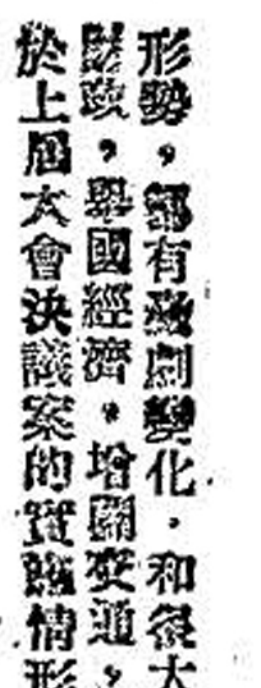 形勢，都有急劇變化，和很大
財政，舉國經濟，增闢交通，
於上屆大會決議案的實施情形